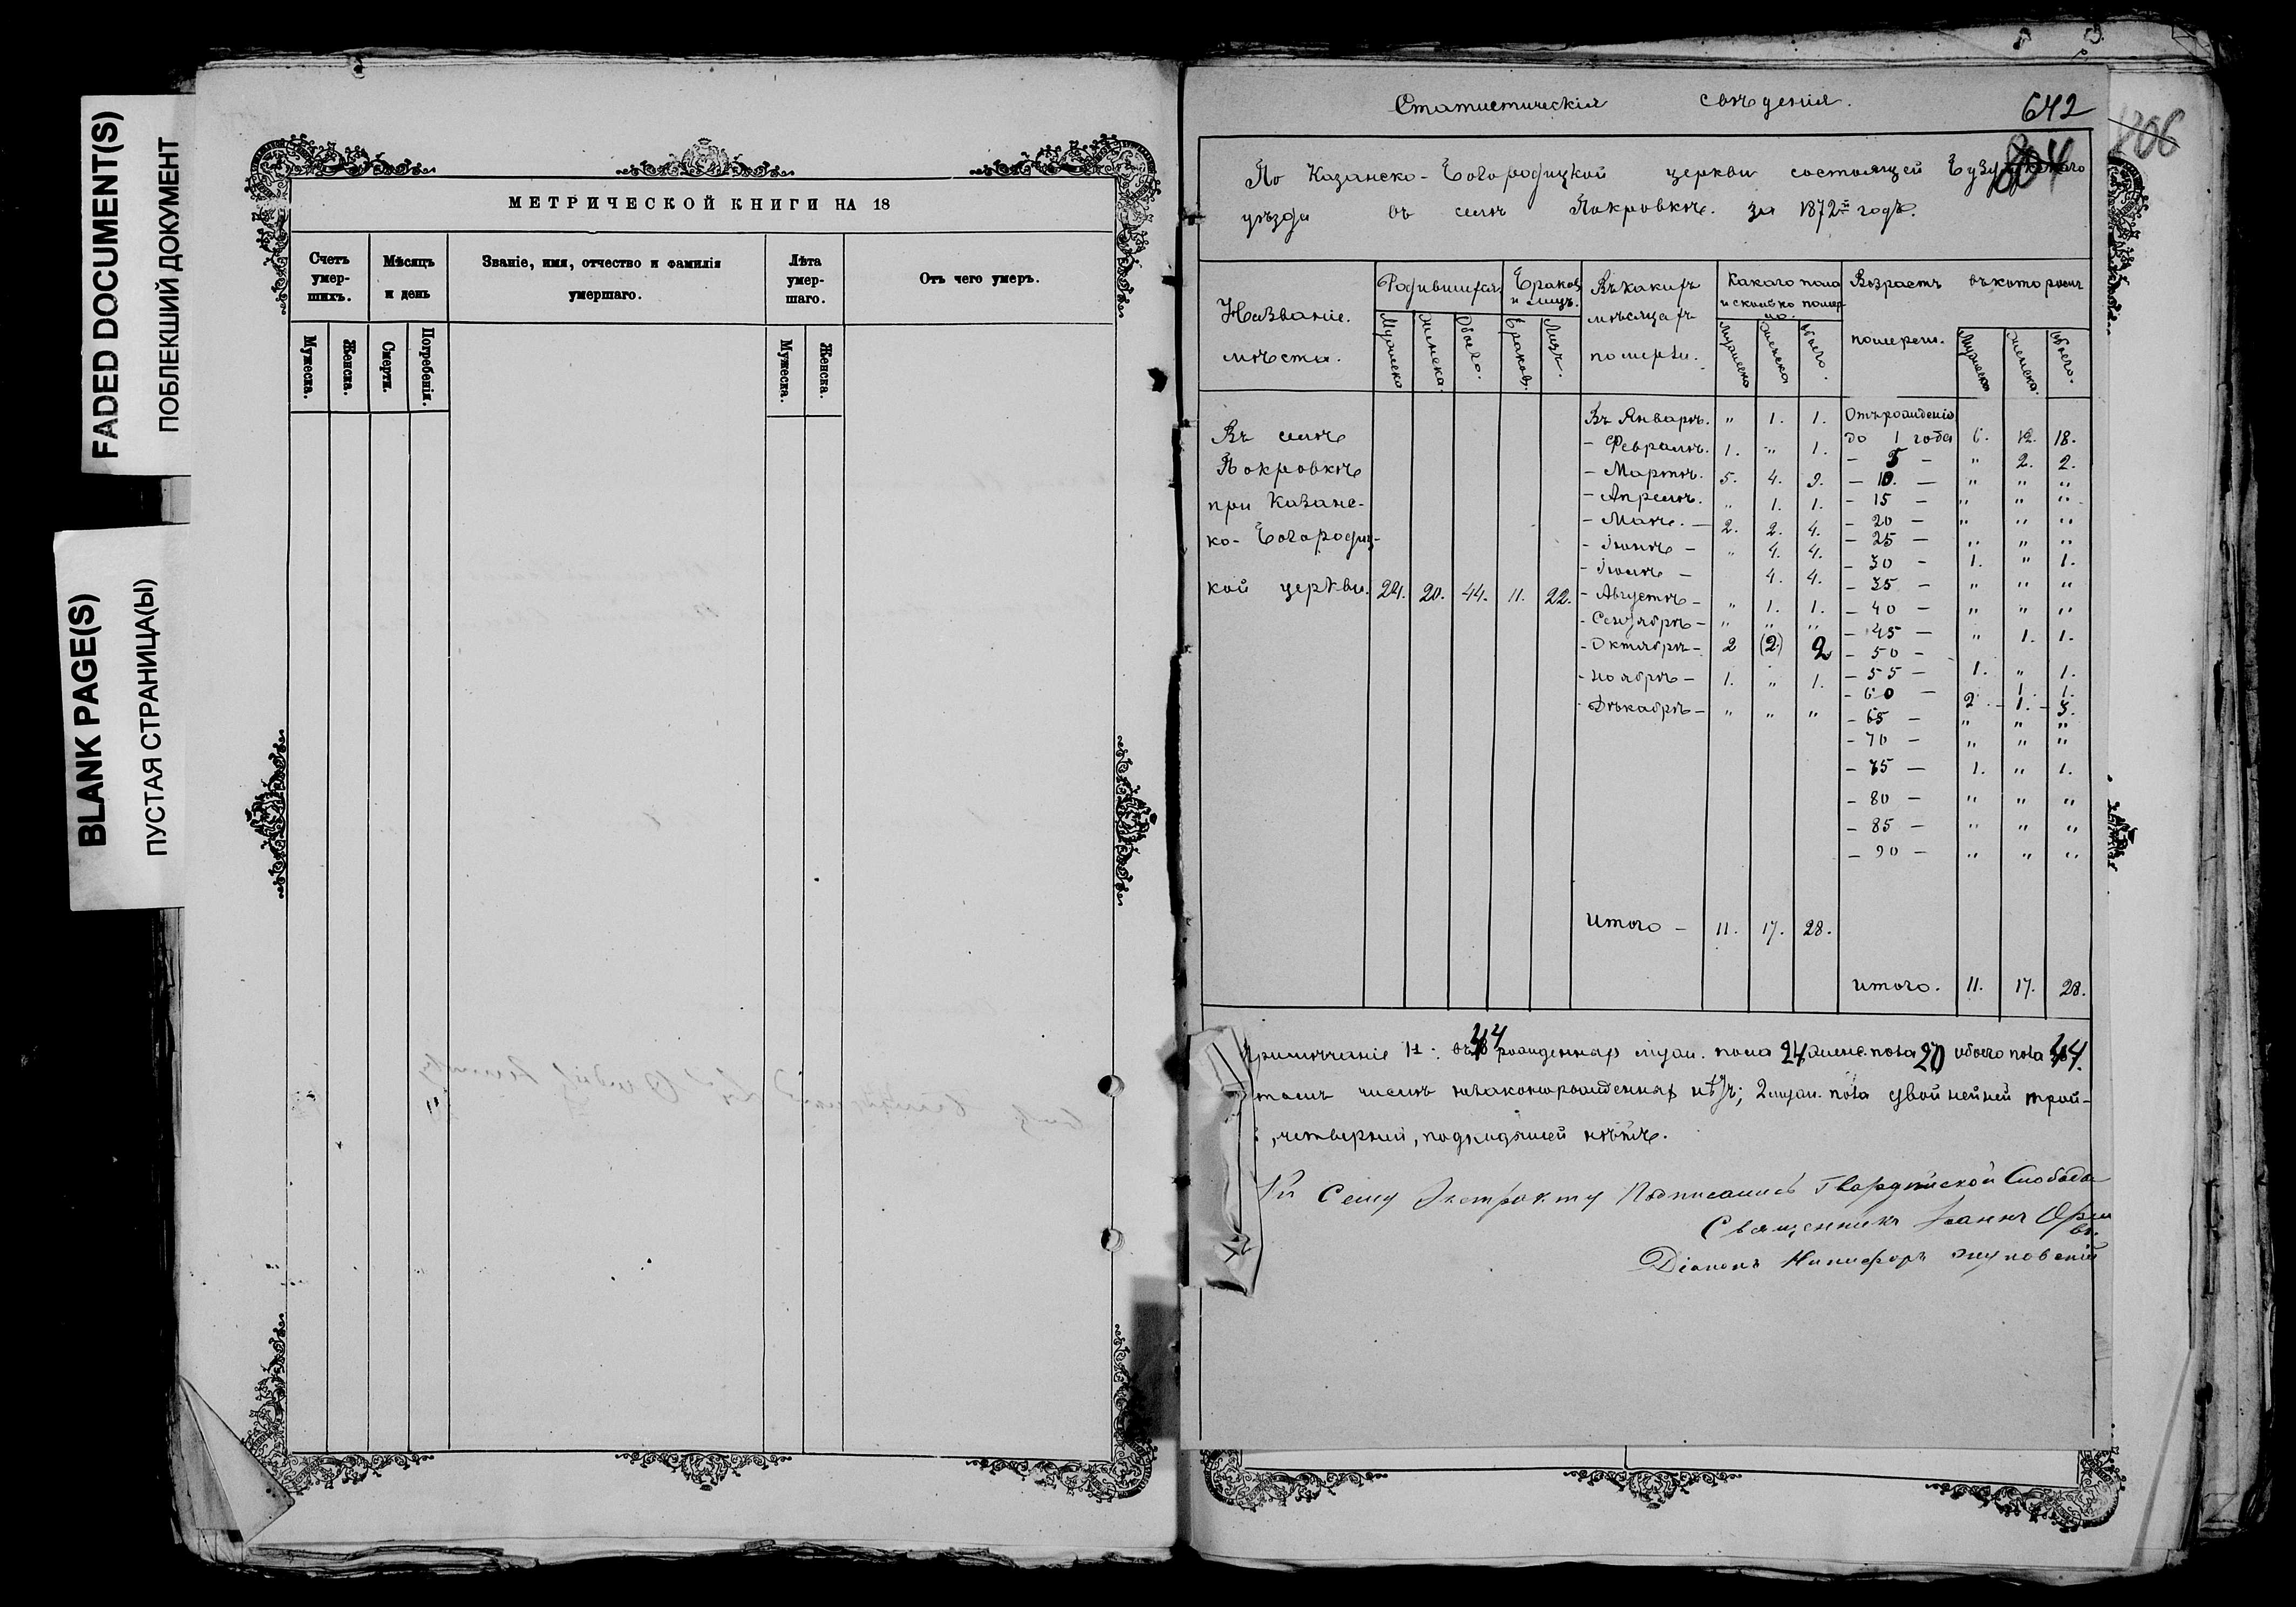 FADED DOCUMENT(S)
ПОБЛЕКШИЙ ДОКУМЕНТ
BLANK PAGE(S)
ПУСТАЯ СТРАНИЦА(Ы)
МЕТРИЧЕСКОЙ КНИГИ НА 18
Счетъ умер-шихъ.
Мѣсяцъ и день
Званіе, имя, отчество и фамилія умершаго.
Лѣта умер-шаго.
Отъ чего умеръ.
Мужеска.
Женска.
Смерти.
Погребенія.
Мужеска.
Женска.
Статистическія свѣденія.
642
804
806
По Казанско-Богородицкой церкви состоящей Бузулукскаго
уѣзда въ селѣ Покровкѣ. за 1872й годъ.
Названіе. мѣста.
Родившихся
Браков и лицъ.
Въ какихъ мѣсяцахъ померли.
Какого пола и сколько померло.
Возрастъ въ котором померли.
Мужеска Женска. Обоего. Браков. Лицъ. Мужеска Женска Обоего. Мужеска Женска. Обоего.
Въ селѣ
Покровкѣ
при Казанс-
ко-Богородиц-
кой церкви. 24. 20. 44. 11. 22.
Въ Январѣ. " 1. 1.
- Февралѣ. 1. " 1.
- Мартѣ. 5. 4. 9.
- Апрелѣ. " 1. 1.
- Маѣ. - 2. 2. 4.
- Іюнѣ - " 4. 4.
- Іюлѣ - 4. 4.
- Августѣ - " 1. 1.
- Сентябрѣ - " " "
- Октябрѣ - 2 (2.) 2
- Ноябрѣ - 1. " 1.
- Дѣкабрѣ - " " "
Итого - 11. 17. 28.
Отъ рожденія
до 1 года 6. 12. 18.
- 5 - " 2. 2.
- 10. - " " "
- 15 - " " "
- 20 - " " "
- 25 - " " "
- 30 - 1. " 1.
- 35 - " " "
- 40 - " " "
- 45 - " 1. 1.
- 50 -
- 55 - 1. " 1.
- 60 - 2. 1. 3.
- 65 - " " "
- 70 - " " "
- 75 - 1. " 1.
- 80 - " " "
- 85 - " " "
- 90 - " " "
Итого. 11. 17. 28.
Примѣчаніе 1е: въ 44 рожденныхъ муж. пола 24, женс. пола 20 обоего пола 44.
томъ числѣ незаконорожденных нѣтъ; 2 муж. пола двойнейней трой-
, четверней, подкидышей нѣтъ.
Къ Сему Экстракту Подписались Гвардейской Слободы
Священникъ Іоаннъ Орлов
Діаконъ Никифоръ Жуковскій